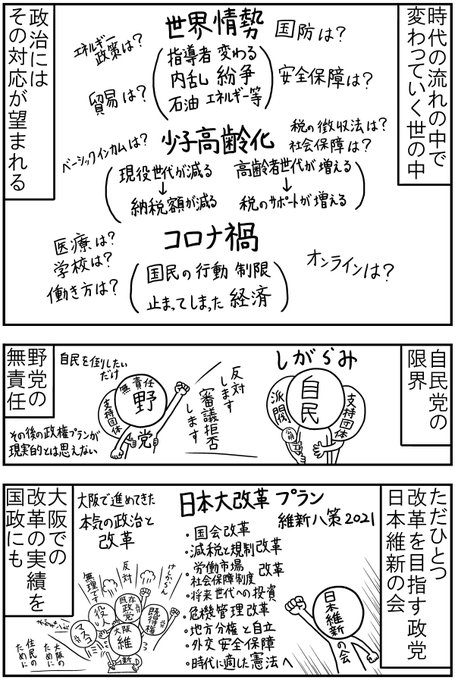 時代の流れの中で
変わっていく世の中
政治には
その対応が望まれる
世界情勢
国防は?
エネルギー
政策は?
指導者 変わる
内乱 紛争
石油 エネルギー等
安全保障は?
貿易は?
少子高齢化
税の徴収法は?
社会保障は?
ベーシックインカムは?
現役世代が減る
↓
納税額が減る
高齢者世代が増える
↓
税のサポートが増える
コロナ禍
医療は?
学校は?
働き方は?
国民の行動 制限
止まってしまった 経済
オンラインは?
自民党の
限界
しがらみ
自民
派閥
支持団体
反対
します
審議拒否
します
野党の
無責任
自民を倒したい
だけ
無責任
野
党
支持団体
その後の政権プランが
現実的とは思えない
ただひとつ
改革を目指す政党
日本維新の会
日本大改革プラン
維新八策2021
・国会改革
・減税と規制改革
・労働市場
社会保障制度 改革
・将来世代への投資
・危機管理改革
・地方分権と自立
・外交 安全保障
・時代に適した憲法へ
日本維新の会
大阪での
改革の実績を
国政にも
大阪で進めてきた
本気の政治と
改革
無理です
反対
役人
既存
政党
既得権
マスコミ
大阪
維新
大阪の
ために
住民の
ために